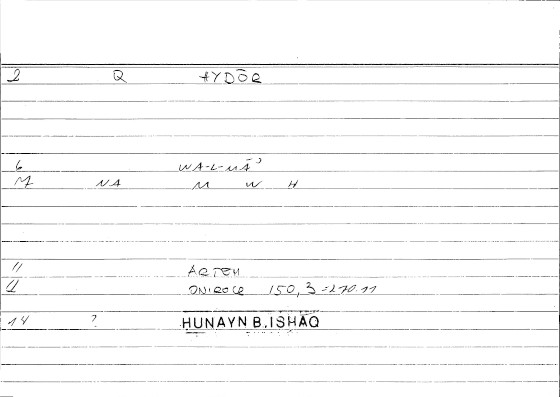 2 Q HYDŌR
6 WA-L-MĀʾ
M NA M W H
11 ARTEM
ONIROCR 150,3 = 270.11
14 ? HUNAYN B.ISHĀQ